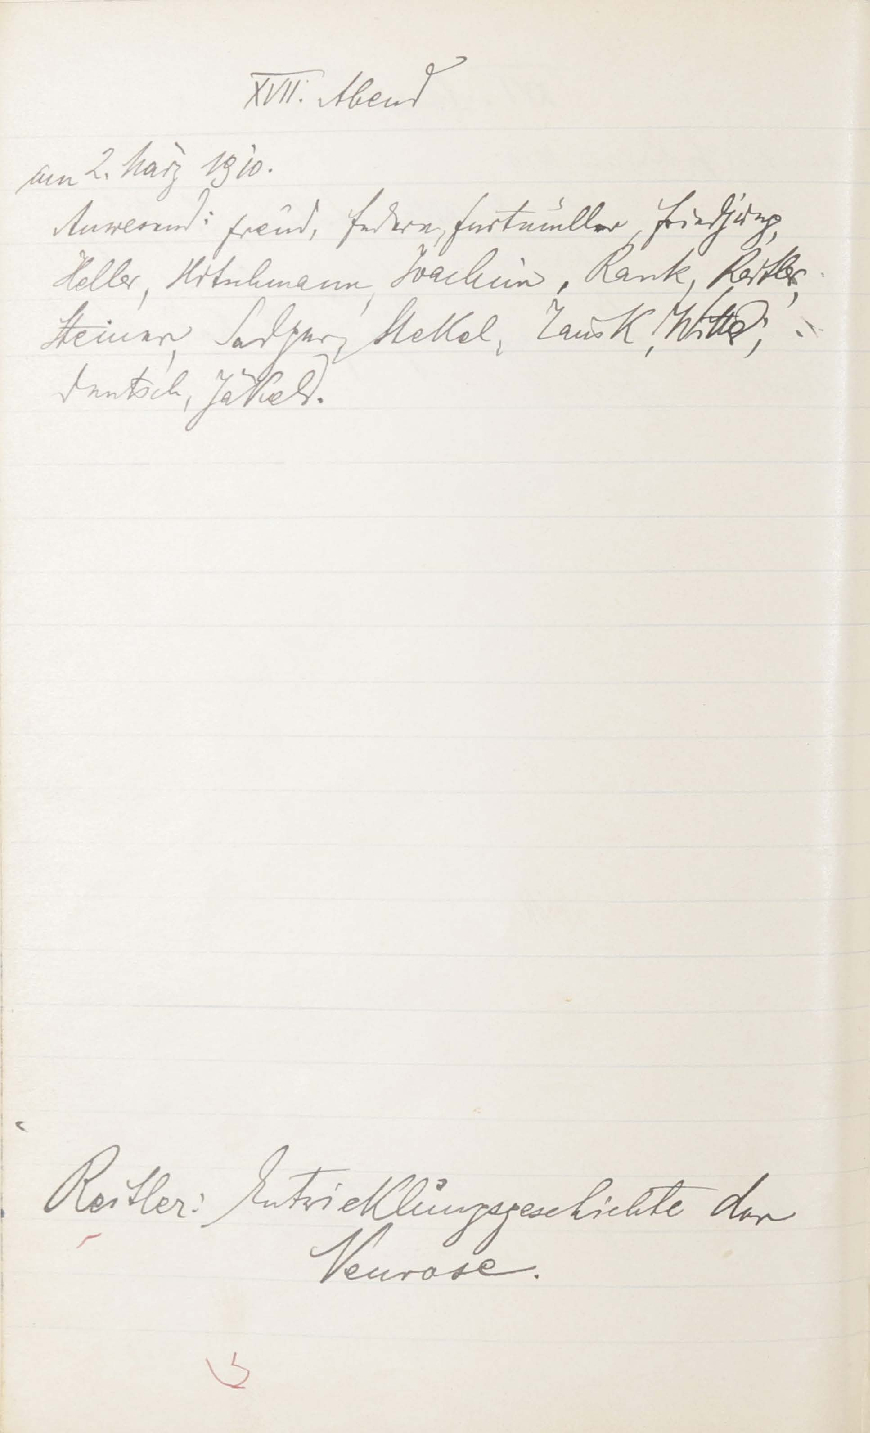 XVII. Abend
am 2. März 1910.
Anwesend: Freud, Federn, Furtmüller, Friedjung,
Heller, Hitschmann, Joachim, Rank, Reitler,
Steiner, Sadger, Stekel, Tausk, Wittels,
Deutsch, Jekels.
Reitler: Entwicklungsgeschichte der
Neurose.